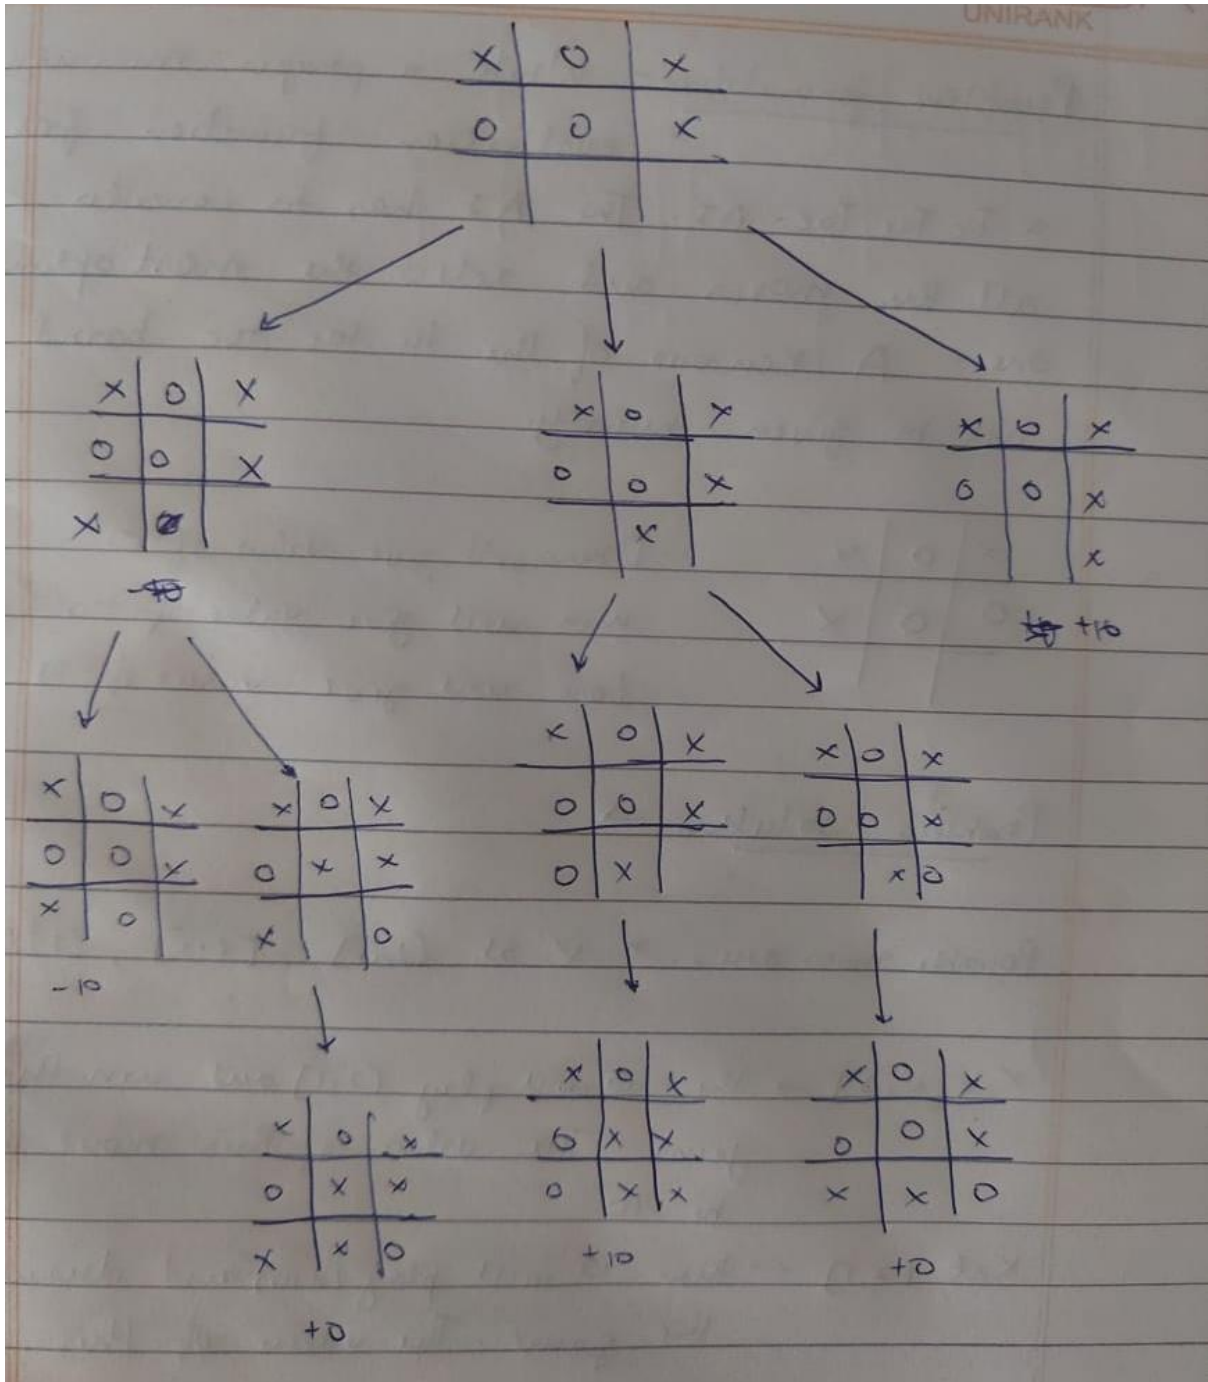 UNIRANK
X O X
O O X
X O X
O O X
X
X O X
O O X
X
X O X
O O X
X
+10
X O X
O O X
X O
-10
X O X
O X X
X O
X O X
O O X
O X
X O X
O O X
X O
X O X
O X X
X X O
+0
X O X
O X X
O X X
+10
X O X
O O X
X X O
+0